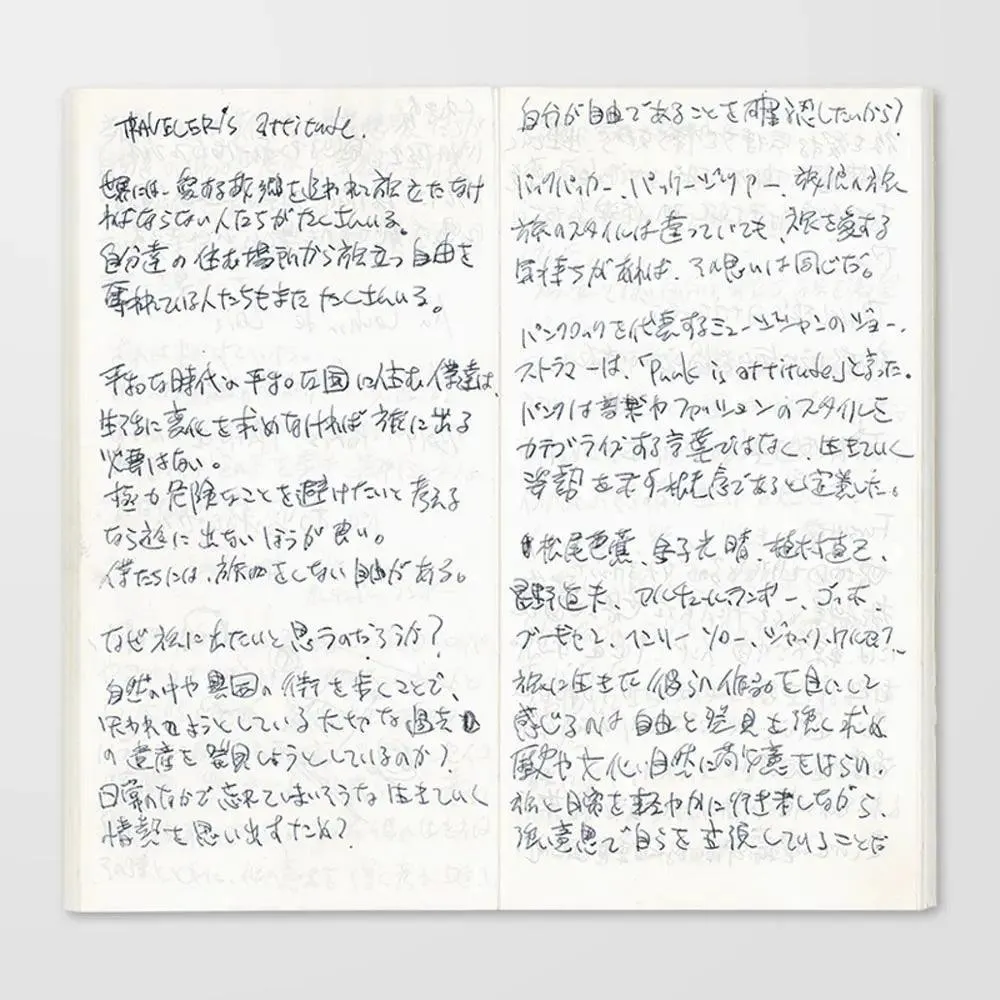 TRAVELER's attitude.
世界には、愛する故郷を追われ旅立たなけ
ればならない人たちがたくさんいる。
自分達の住む場所から旅立つ自由を
奪われている人たちもまたたくさんいる。
平和な時代の平和な国に住む僕達は、
生活に変化を求めなければ旅に出る
必要はない。
極力危険なことを避けたいと考える
なら旅に出ないほうが良い。
僕たちには、旅をしない自由がある。
なぜ旅に出たいと思うのだろうか?
自然の中や異国の街を歩くことで、
失われようとしている大切な過去
の遺産を発見しようとしているのか?
日常のなかで忘れてしまいそうな生きていく
情熱を思い出すため?
自分が自由であることを確認したいから?
バックパッカー、パッケージツアー、放浪の旅
旅のスタイルは違っていても、旅を愛する
気持ちがあれば、その思いは同じだ。
パンクロックを代表するミュージシャンのジョー・
ストラマーは、「Punk is attitude」と言った。
パンクは音楽やファッションのスタイルを
カテゴライズする言葉ではなく、生きていく
姿勢を示す概念であると定義した。
松尾芭蕉、金子光晴、植村直己、
星野道夫、アルチュールランボー、ゴッホ、
ブーサビン、ヘンリーソロー、ジャック・ケルアック
旅に生きた彼らの作品を目にして
感じるのは自由と発見を強く求め
歴史や文化、自然に敬意をはらい、
旅と日常を軽やかに行き来しながら
強い意思で自らを主張していることだ